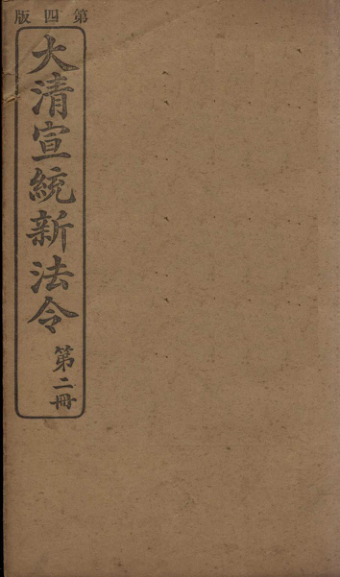 第四版
大清宣統新法令
第二冊